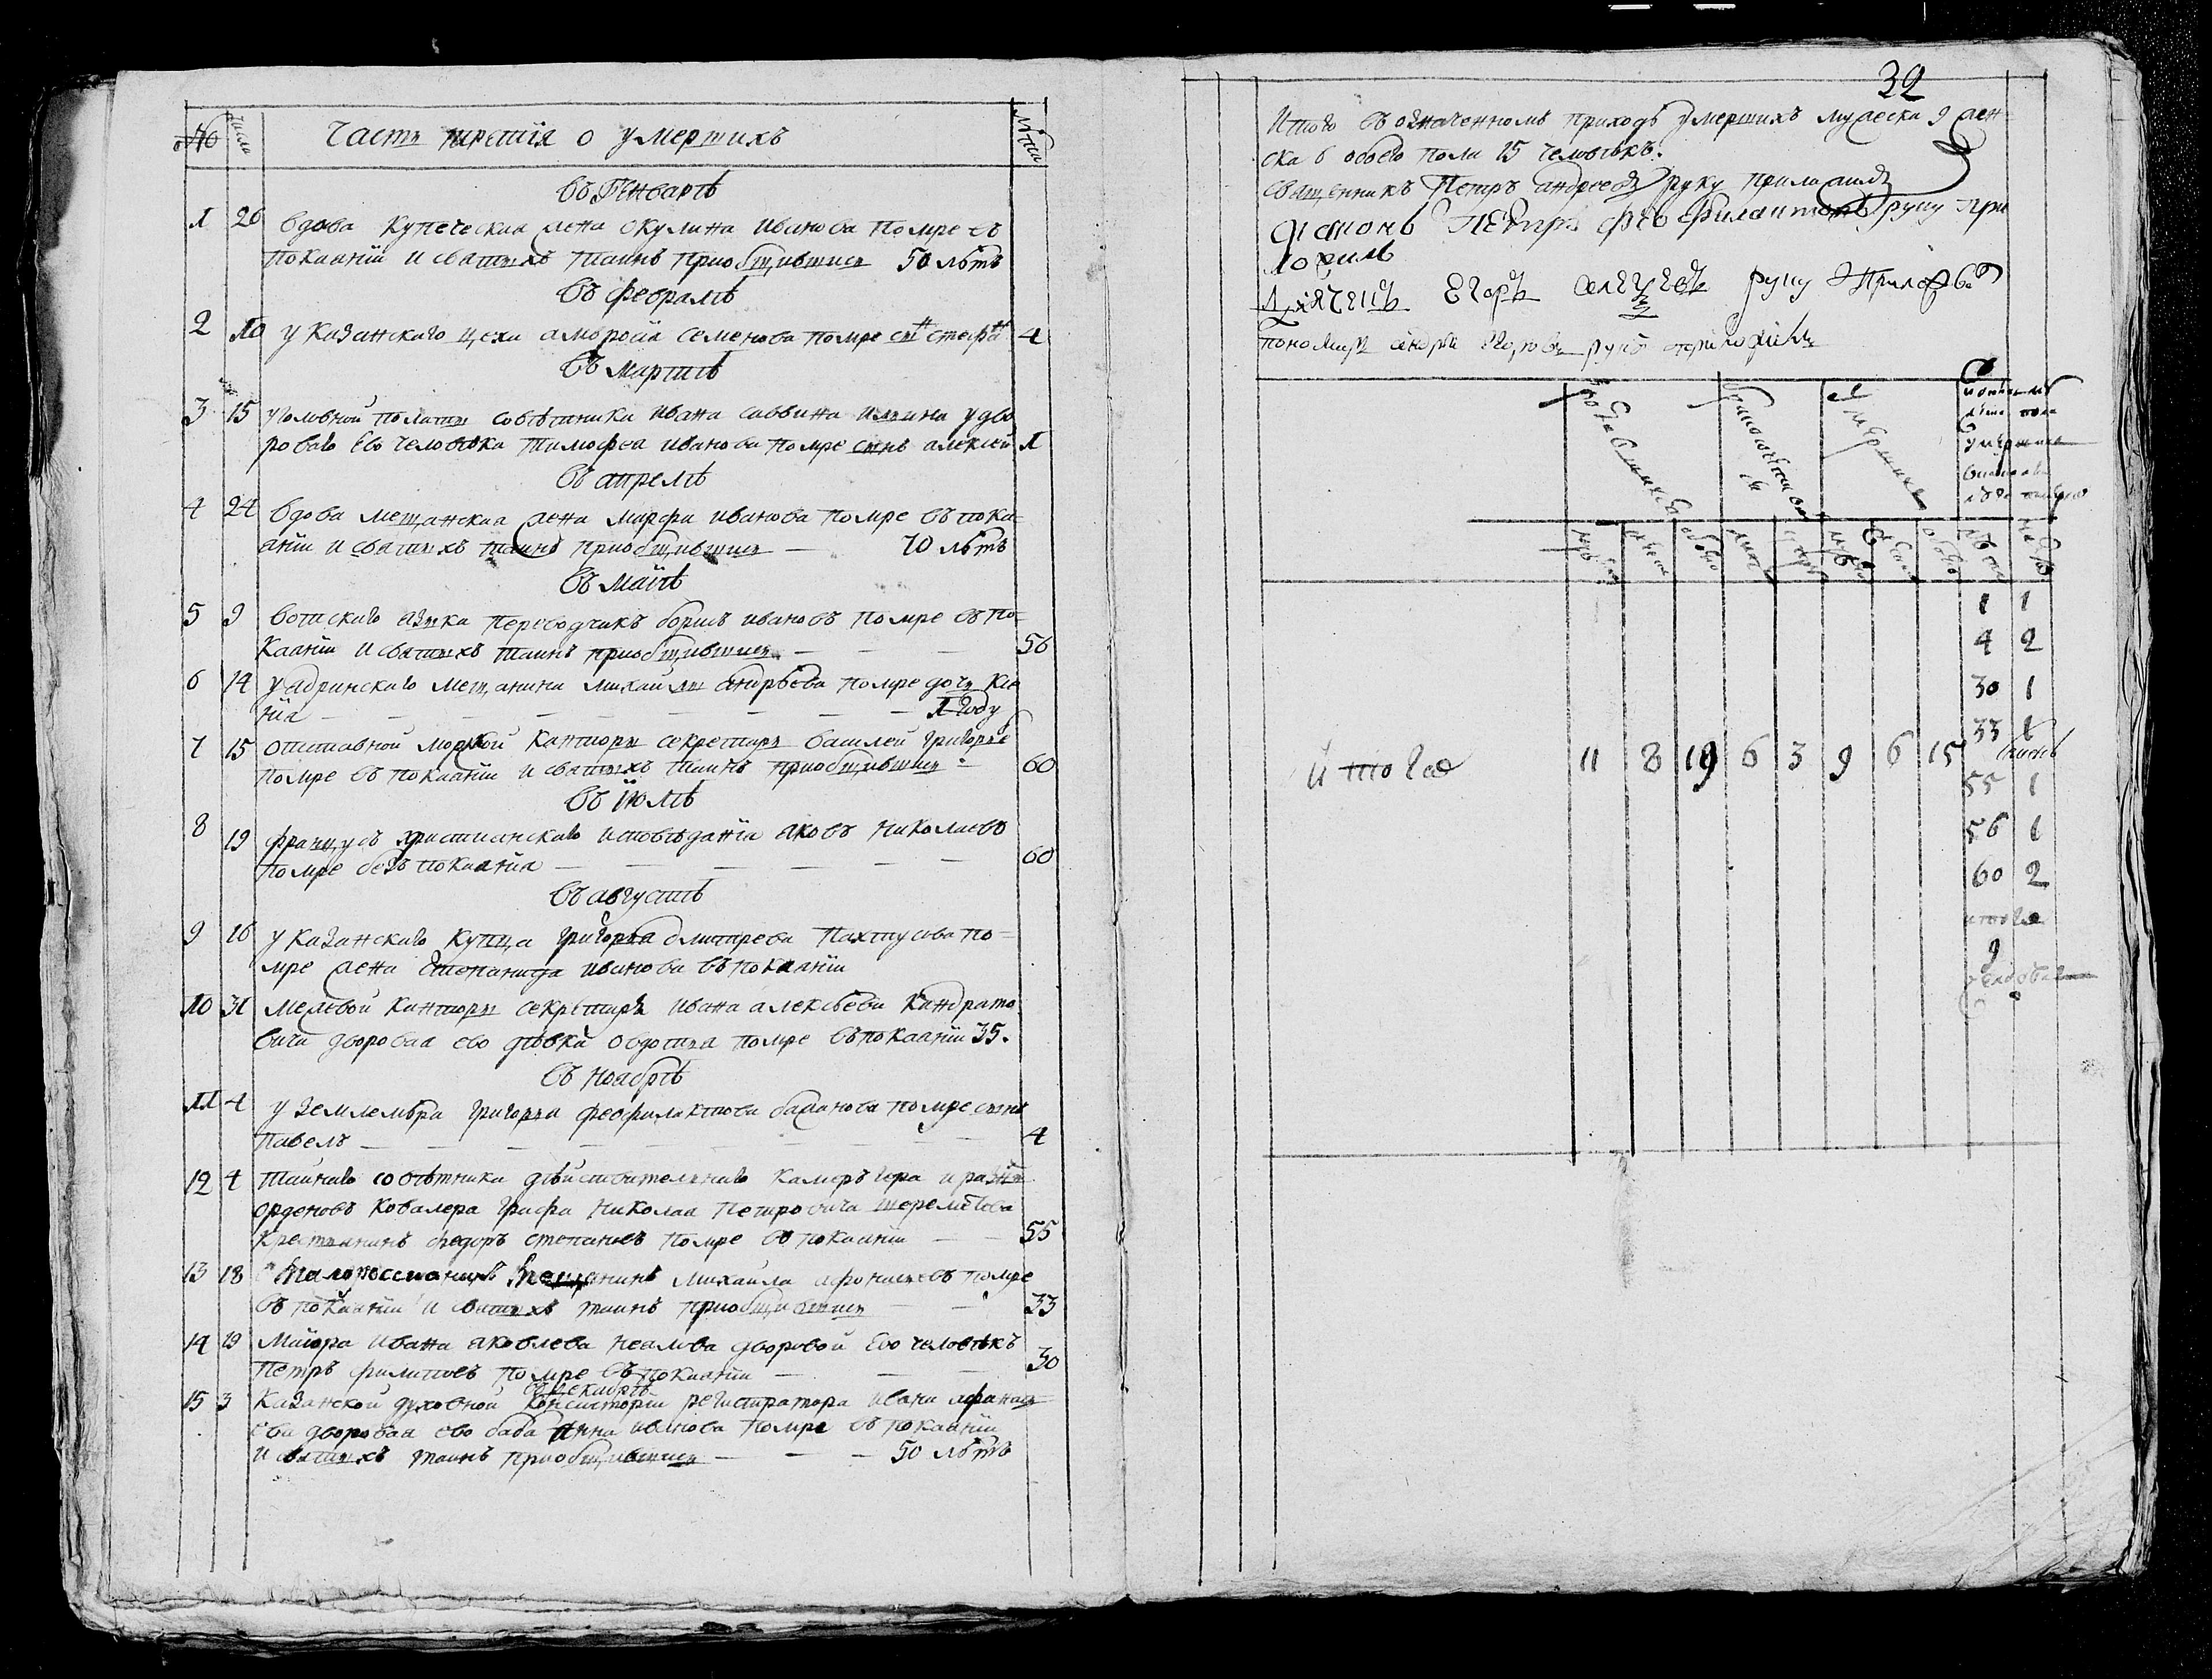 № числа Часть третия о умертихъ лѣта
въ Генварѣ
1 26 вдова купеческая жена окулина иванова помре въ
покаянїи и святыхъ таинъ приобщившися 50 лѣтъ
въ февралѣ
2 10 у казанскаго цеха амвросїа семенова помре снъ стефанъ 4
въ мартѣ
3 15 уголовной полаты совѣтника ивана саввина у дво
роваго его человѣка тимофея иванова помре снъ алексей 1
въ апрелѣ
4 24 вдова мещанская жена марфа иванова помре въ пока
анїи и святыхъ таинъ приобщившися — 70 лѣтъ
въ маїѣ
5 9 вотскаго языка переводчикъ борисъ ивановъ помре въ по=
каянїи и святыхъ таинъ приобщившися — — — 56
6 14 у ядринскаго мещанина михаилы андрѣева помре дочь ксе
нїа — — — — — — — — — 1 году
7 15 отставной морской канторы секретарь василей григорье
помре въ покаянїи и святыхъ таинъ приобщившися — 60
въ Июлѣ
8 19 французъ христианскаго исповѣданїа яковъ николаевъ
помре безъ покаянїа — — — — — — 60
въ августѣ
9 16 у казанскаго купца григорьа дмитрева пахтусова по=
мре жена степанида иванова въ покаянїи
10 31 межевой канторы секретаря ивана алексѣева кандрато
вича дворовая ево дѣвка овдотья помре въ покаянїи 35.
въ ноабрѣ
11 4 у землемѣра григорья феофилактова баженова помре сынъ
павелъ — — — — — — — — 4
12 4 тайнаго совѣтника дѣйствителнаго камеръ гера и разны
орденовъ ковалера графа николая петровича шереметова
крестьянинъ федоръ степановъ помре въ покаянїи — — 55
13 18 малороссианецъ мещанинъ михаила афонасьевъ помре
въ покаянїи и святыхъ таинъ приобщившися — — 33
14 19 маиора ивана яковлева дворовой ево человѣкъ
петръ филиповъ помре въ покаянїи — — 30
въ декабрѣ
15 3 казанской духовной консисторїи регистратора ивана афанась
ева дворовая ево баба анна иванова помре въ покаянїи
и святыхъ таинъ приобщившися — — — 50 лѣтъ
32
Итого въ означенномъ приходѣ умершихъ мужеска 9 жен
ска 6 обоего пола 15 человѣкъ.
священникъ Петръ андреевъ руку приложилъ
диаконъ петръ руку при
ложилъ
дьячекъ егоръ руку приложилъ
пономарь руку приложилъ
родившихся
умершихъ
муж женс обоего муж женс обоего лѣта
1 1
4 2
30 1
33 1
Итого 11 8 19 6 3 9 6 15
55 1
56 1
60 2
итого
9
человѣкъ